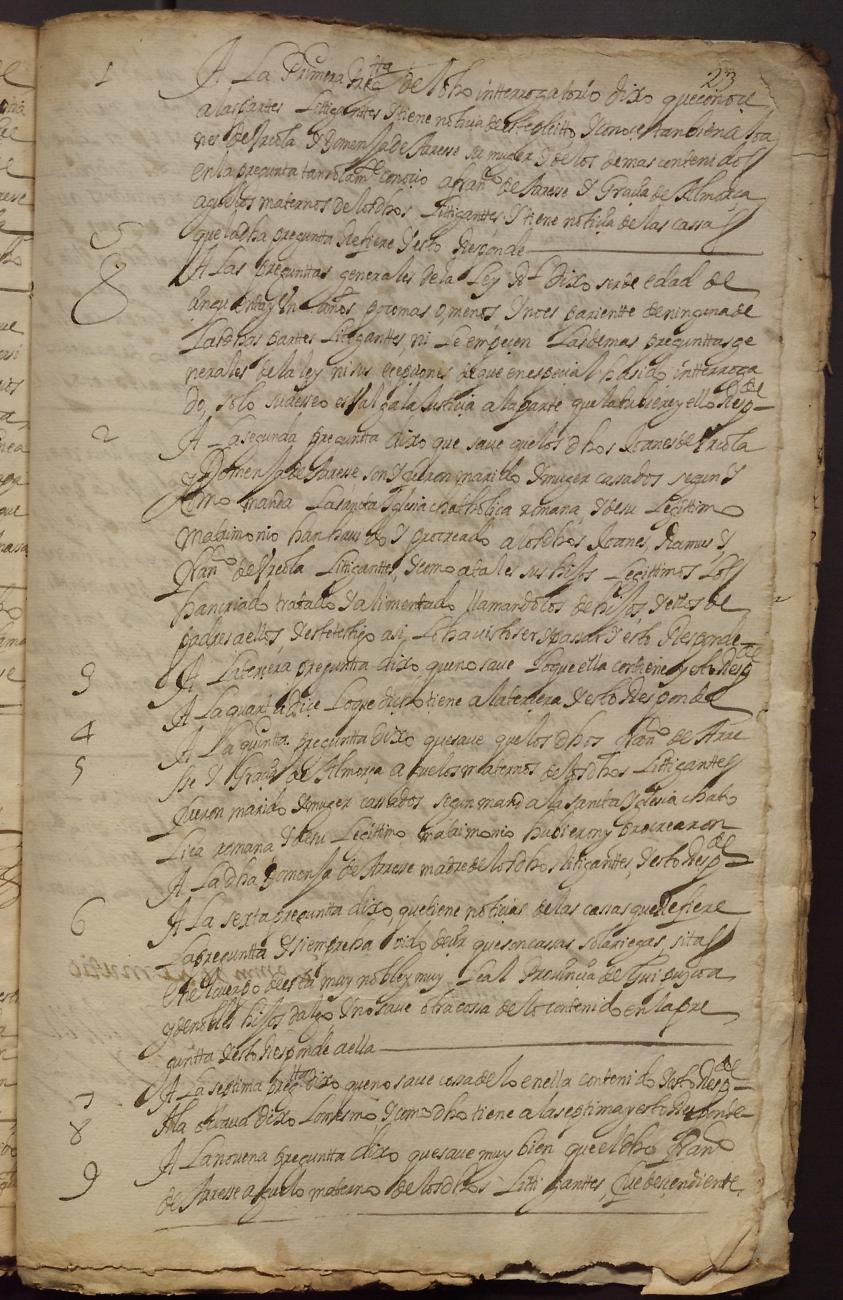 23
1 A La Primera pregta del dho intterrogatorio dixo que conoce
a las partes Littigantes y tiene noticia deste pleitto y conoce tambien a Joa
nes de Yrcola y Domenja de Yaresse su muger y de los demas contenidos
en la pregunta tan solamte conocio a Franco de Yaresse y Gracia de Almorça
aguelos maternos de los dhos Littigantes y tiene noticia de las cassas
que la dha pregunta Refiere y esto Responde
A Las preguntas generales de la Ley Rl Dixo ser de edad de
çinquenta y un años poco mas o menos y no es pariente de ninguna de
Las dhas partes Litigantes, ni Le empecen Las demas preguntas ge
nerales de la ley ni sus excepciones de que en especial ha sido intterroga
do, solo su desseo es Valga la Justicia a la parte que la hubiere y ello Respde
2 A La segunda pregunta dixo que save que los dhos Joanes de Yrcola
y Domenja de Yaresse son y fueron marido y muger casados segun y
como manda La santa Yglesia chatholica romana, y de su Legitimo
Matrimonio han havido y procreado a los dhos Joanes, Ramus y
Franco de Yrcola Litigantes, y como a tales sus hijos Legittimos Los
han criado tratado y alimentado llamandolos de hijos, y ellos de
padres a ellos, y este testigo asi Lo ha visto ser y pasar y esto Responde
3 A La tercera pregunta dixo, que no save Lo que ella contiene y esto Respde
4 A La quarta dice Lo que dicho tiene a la tercera y esto Responde
5 A La quintta pregunta dixo que save que los dhos Franco de Arre
sse y Gracia de Almorça aguelos maternos de los dhos Littigantes
fueron marido y muger cassados segun manda la santa Yglesia chato
Lica romana y de su Legittimo matrimonio hubieron y procrearon
A La dha Domenja de Arresse madre de los dhos litigantes y esto Respde
6 A La sexta pregunta dixo, que tiene noticias de las cassas que Refiere
La pregunta y siempre ha oido decir que son casas solariegas, sitas
en el cuerpo de esta muy noble y muy Leal Provincia de Guipuzcoa
y de nobles hijos dalgo y no save otra cossa de lo contenido en la pre
guntta y esto Responde a ella
7 A La septima pregtta dixo que no save cossa de lo en ella contenido y esto Respde
8 A la octava dixo Lo mesmo, y como dho tiene a la septima y esto Responde
9 A La novena pregunta dixo que save muy bien que el dho Franco
de Yaresse aguelo materno de los dhos Littigantes, fue descendiente